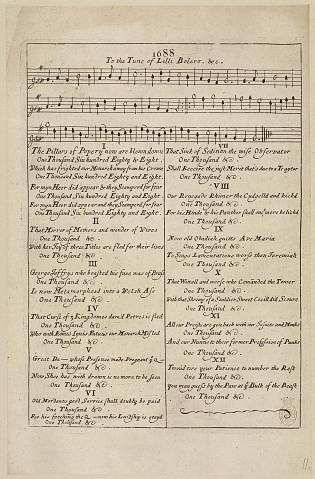 1688
To the Tune of Lilli Bolero. &c.
I
The Pillars of Popery now are blown down
One Thousand Six hundred Eighty & Eight.
Which has frighted our Monarch away from his Crown
One Thousand Six hundred Eighty and Eight.
For Myn Heer did appear & they Scamper'd for fear
One Thousand, Six hundred Eighty & Eight.
For Myn Heer did appear and they Scamper'd for fear
One Thousand Six hundred Eighty and Eight.
II
That Mirror of Mothers and wonder of Wives
One Thousand &c.
With her Joy of three Titles are fled for their lives
One Thousand &c.
III
George Jeffrys who boasted his face was of Brass
One Thousand &c.
Is now Metamorphos'd into a Welch Ass
One Thousand &c.
IV
That Curse of 3 Kingdomes damn'd Petres is fled
One Thousand &c.
Who with Romes Ignis Fatuus our Monarch Misled
One Thousand &c.
V
Great Da— whose Presence made Pregnant ye Q—
One Thousand &c.
Now Shee has with drawn is no more to be seen
One Thousand &c.
VI
Old Mordants good Service shall doubly be paid
One Thousand &c.
For his fetching the Q— now his Lordship is
One Thousand &c.
VII
That Sink of Sedition the wise Observator
One Thousand &c.
Shall Receive the just Merit that's due to a Traytor
One Thousand &c.
VIII
Our Renegade Rhimer the Cudgelld and kickd
One Thousand &c.
For his Hinde & his Panther shall once more be lickd
One Thousand &c.
IX
Now old Obadiah quitts Ave Maria
One Thousand &c.
To Sings Lamentations worse then Jeremiah
One Thousand &c.
X
That Wittall and worse who Comanded the Tower
One Thousand &c.
With that Shrimp of a Souldier Sweet Cecill did Scower
One Thousand &c.
XI
All our Preists are gon back with our Jesuits and Monks
One Thousand &c.
And our Nunns to their former Proffesion of Punks
One Thousand &c.
XII
To avoid tire your Patience to number the Rest
One Thousand &c.
You may guess by the Paw at ye Bulk of the Beast
One Thousand &c.